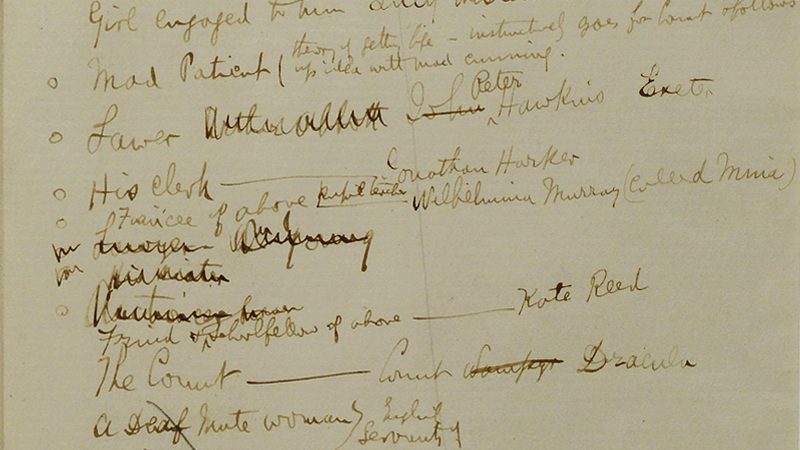 Girl engaged to him
Mad Patient (theory of getting life - instinctively goes for Count & follows
up idea with mad cunning.
Lawer John Peter Hawkins Exeter
His clerk — Jonathan Harker
Fiancee of above pupil teacher Wilhelmina Murray (called Mina)
Lawyer
Friend & schoolfellow of above — Kate Reed
The Count — Count Wampyr Dracula
A Deaf Mute woman } English
servants of